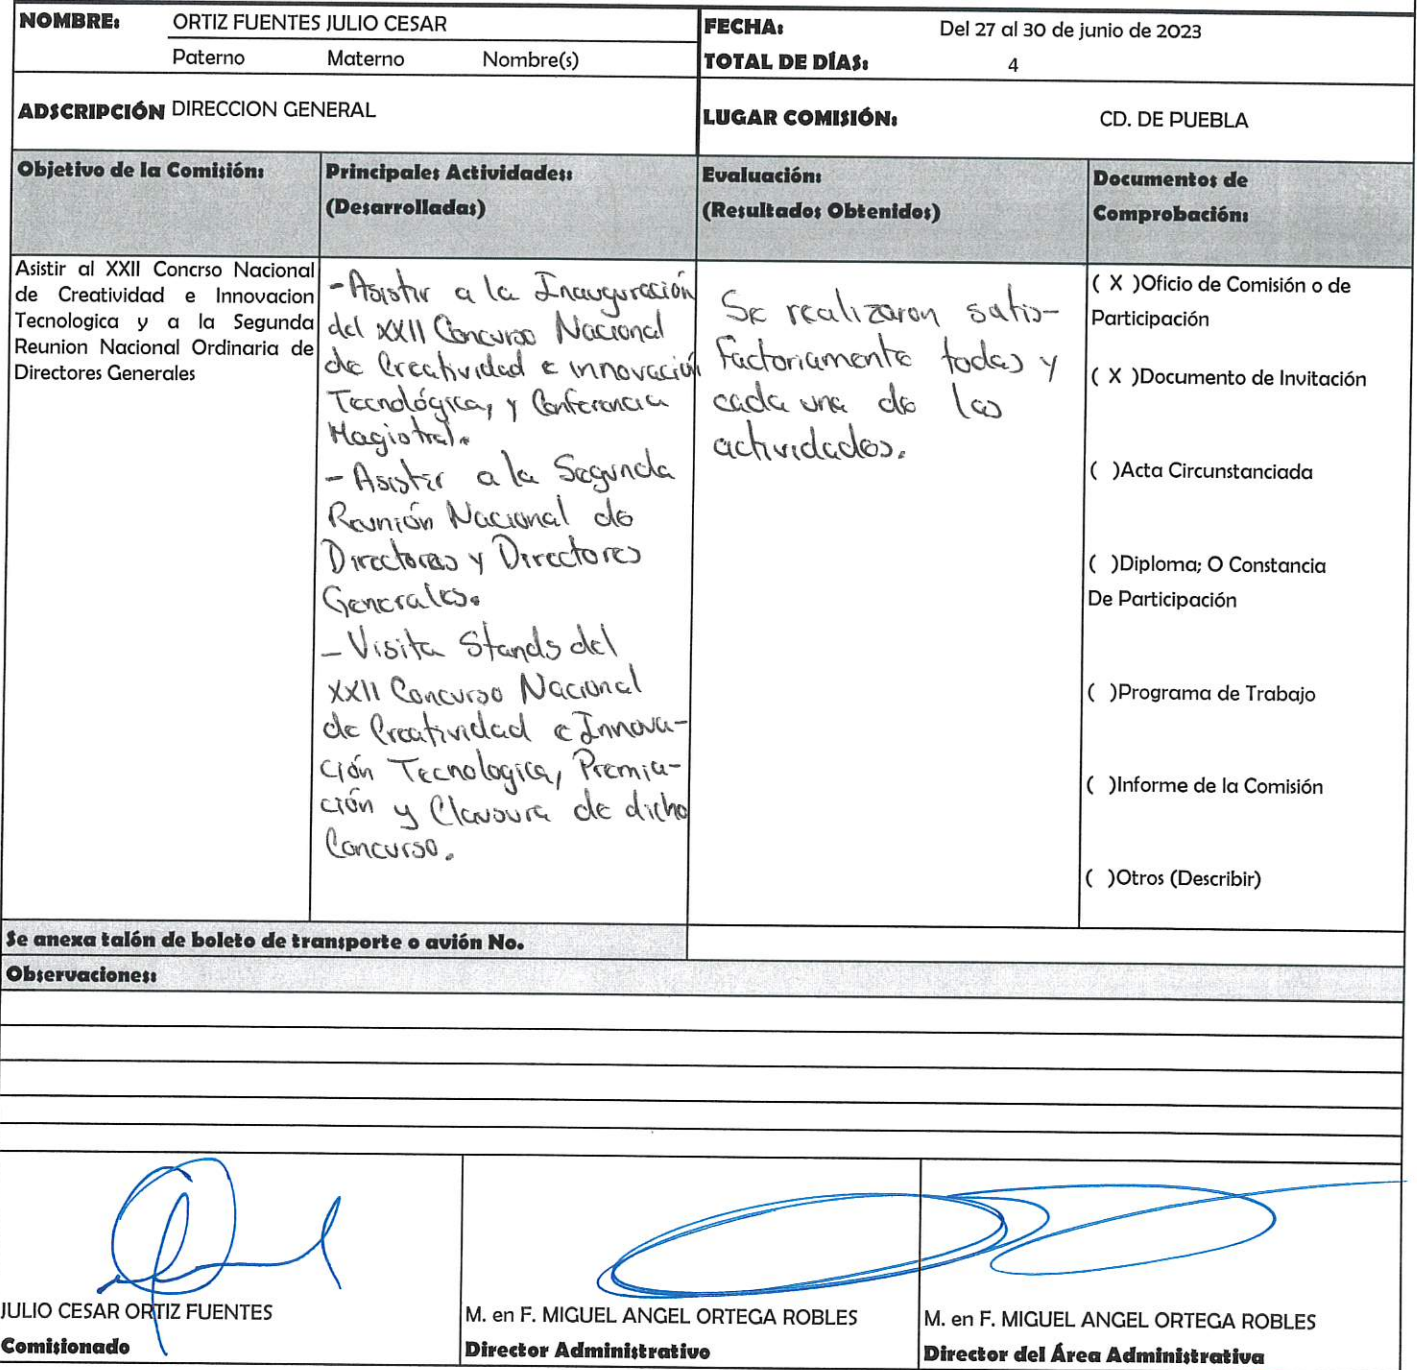 NOMBRE: ORTIZ FUENTES JULIO CESAR
Paterno Materno Nombre(s)
FECHA: Del 27 al 30 de junio de 2023
TOTAL DE DÍAS: 4
ADSCRIPCIÓN DIRECCION GENERAL
LUGAR COMISIÓN: CD. DE PUEBLA
Objetivo de la Comisión:
Principales Actividades:
(Desarrolladas)
Evaluación:
(Resultados Obtenidos)
Documentos de
Comprobación:
Asistir al XXII Concrso Nacional
de Creatividad e Innovacion
Tecnologica y a la Segunda
Reunion Nacional Ordinaria de
Directores Generales
-Asistir a la Inauguración
del XXII Concurso Nacional
de Creatividad e innovación
Tecnológica, y Conferencia
Magistral.
- Asistir a la Segunda
Reunión Nacional de
Directoras y Directores
Generales.
- Visita Stands del
XXII Concurso Nacional
de Creatividad e Innova-
ción Tecnologica, Premia-
ción y Clausura de dicho
Concurso.
Se realizaron satis-
factoriamente todas y
cada una de las
actividades.
( X )Oficio de Comisión o de
Participación
( X )Documento de Invitación
( )Acta Circunstanciada
( )Diploma; O Constancia
De Participación
( )Programa de Trabajo
( )Informe de la Comisión
( )Otros (Describir)
Se anexa talón de boleto de transporte o avión No.
Observaciones:
JULIO CESAR ORTIZ FUENTES
Comisionado
M. en F. MIGUEL ANGEL ORTEGA ROBLES
Director Administrativo
M. en F. MIGUEL ANGEL ORTEGA ROBLES
Director del Área Administrativa